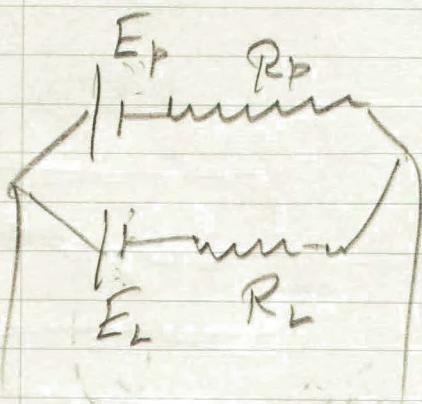 Ep Rp
EL RL